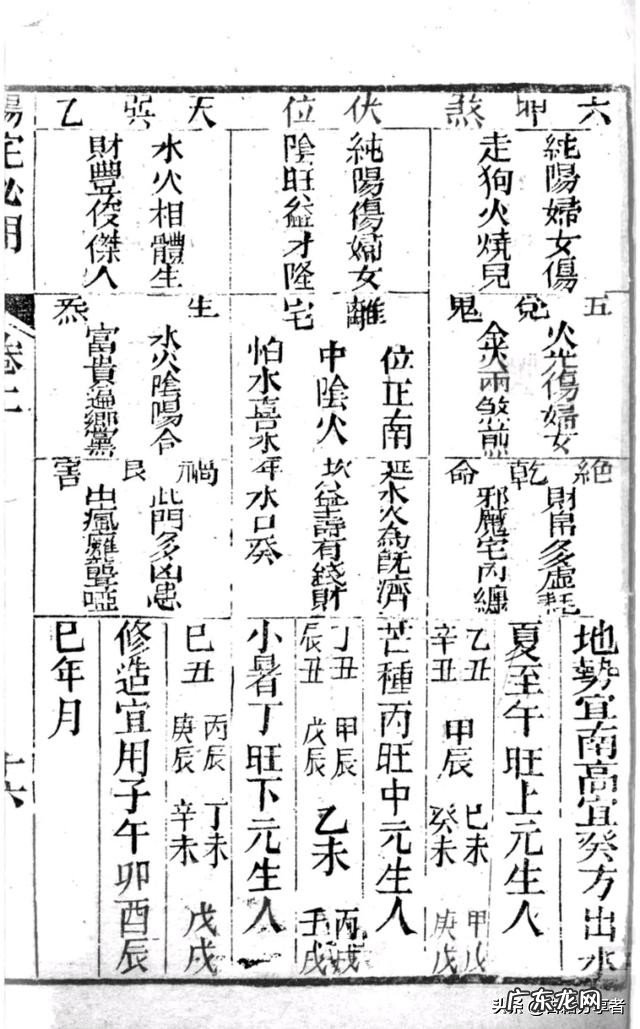 六 坤 煞
純陽婦女傷
走狗火燒兒
伏 位
純陽傷婦女
陰旺益才隆
天 巽 乙
水火相體生
財豐俊傑人
五 兌 鬼
火光傷婦女
金火兩煞煎
離 宅
位正南
中陰火
怕水喜水
生 炁
水火陰陽合
富貴遍鄉黨
絕 乾 命
財帛多虛耗
邪魔宅內纏
延水火為既濟
坎益壽有錢財
年水口癸
禍 艮 害
此門多凶患
出瘋難聾啞
地勢宜南高宜癸方出水
夏至午旺上元生人
乙丑 甲辰 己未 甲戊
辛丑 癸未 庚戊
芒種丙旺中元生人
丁丑 甲辰 乙未 丙戌
辰丑 戊辰 壬戌
小暑丁旺下元生人
巳丑 丙辰 丁未 戊戌
庚辰 辛未
修造宜用子午卯酉辰
巳年月
陽宅必用
卷二
十六
广东龙网